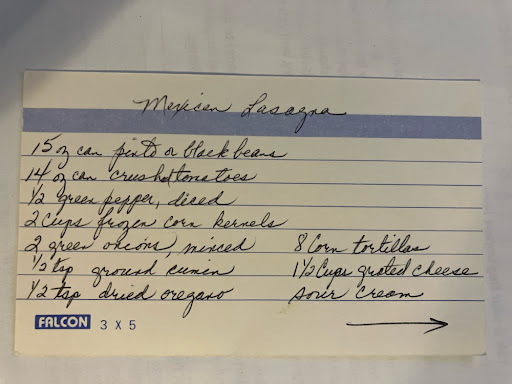 Mexican Lasagna
15 oz can pinto or black beans
14 oz can crushed tomatoes
1/2 green pepper, diced
2 Cups frozen corn kernels
2 green onions, minced
1/2 tsp ground cumin
1/2 tsp dried oregano
8 Corn tortillas
1 1/2 Cups grated cheese
sour cream
FALCON 3 X 5